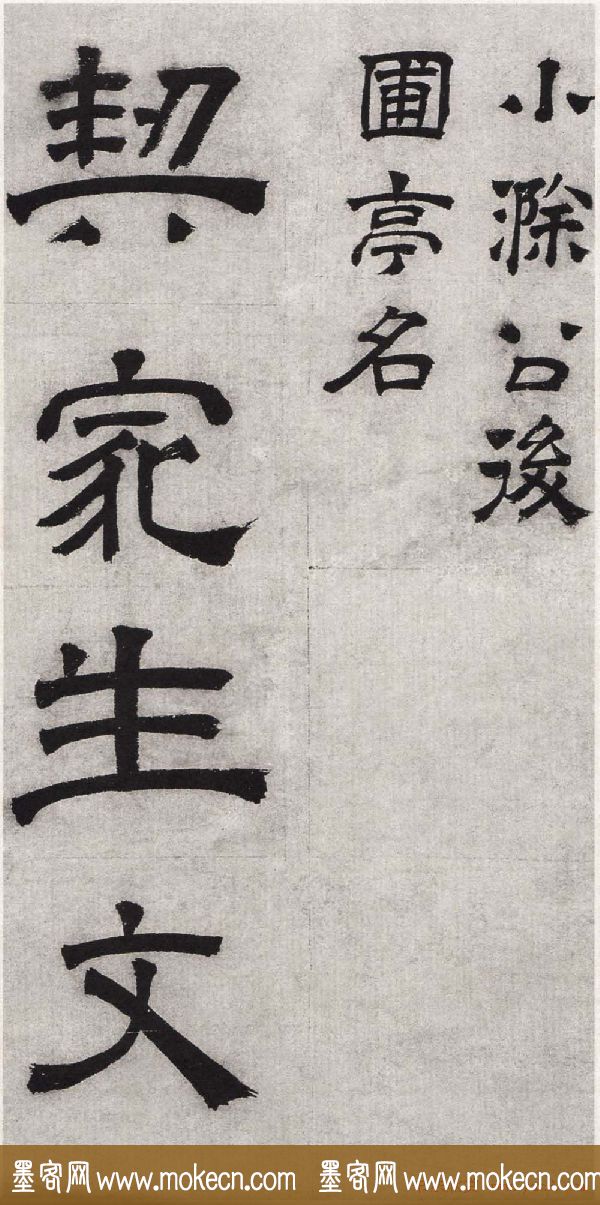 小滁公後
圃亭名
契家生文
墨客网 www.mokecn.com 墨客网 www.mokecn.com